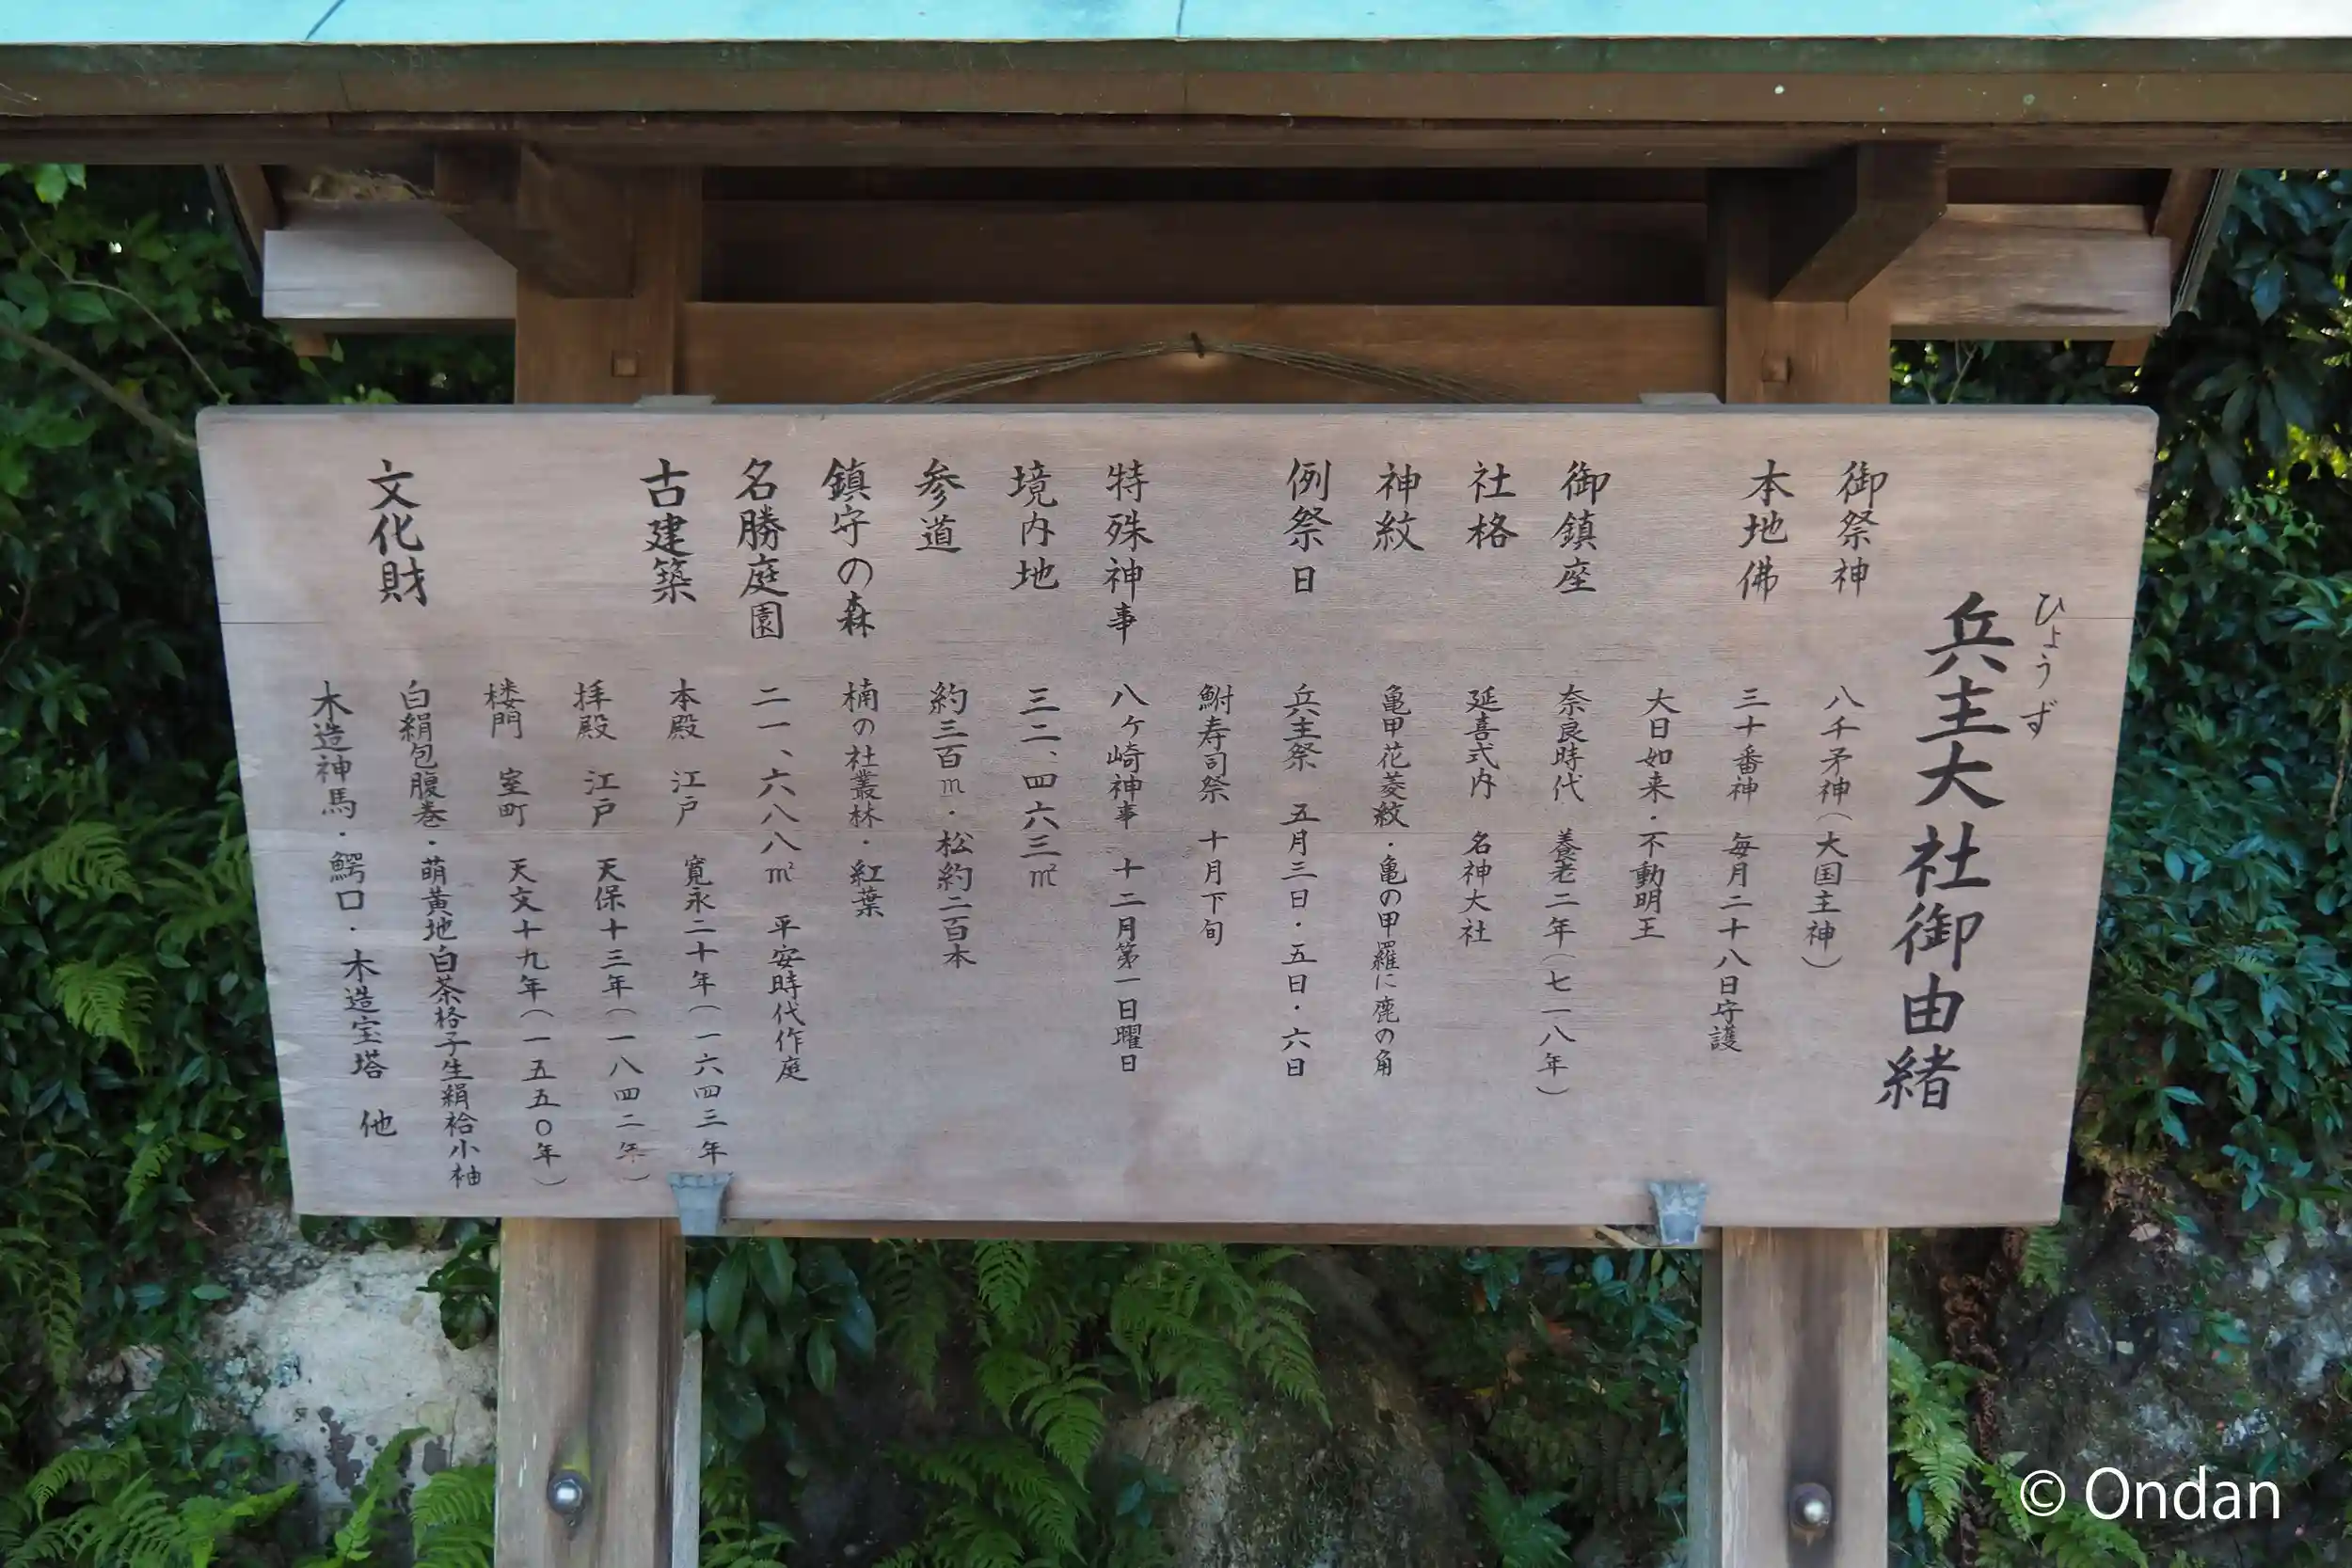 ひょうず
兵主大社御由緒
御祭神 八千矛神（大国主神）
本地佛 三十番神 毎月二十八日守護
大日如来・不動明王
御鎮座 奈良時代 養老二年（七一八年）
社格 延喜式内 名神大社
神紋 亀甲花菱紋・亀の甲羅に鹿の角
例祭日 兵主祭 五月三日・五日・六日
鮒寿司祭 十月下旬
特殊神事 八ケ崎神事 十二月第一日曜日
境内地 三二、四六三㎡
参道 約三百m・松約二百本
鎮守の森 楠の社叢林・紅葉
名勝庭園 二一、六八八㎡ 平安時代作庭
古建築 本殿 江戸 寛永二十年（一六四三年
拝殿 江戸 天保十三年（一八四二年）
楼門 室町 天文十九年（一五五〇年）
文化財 白絹包腹巻・萌黄地白茶格子生絹袷小袖
木造神馬・鰐口・木造宝塔 他
© Ondan